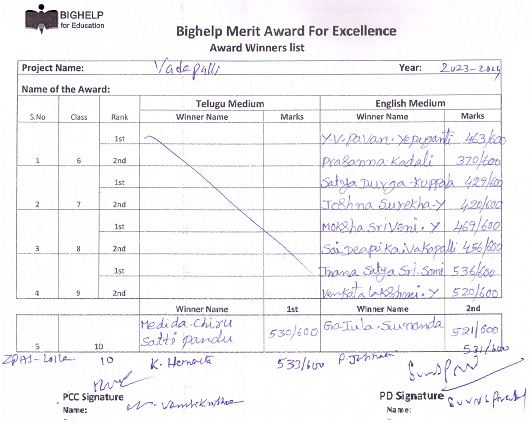 BIGHELP
for Education
Bighelp Merit Award For Excellence
Award Winners list
Project Name: Vadapalli Year: 2023-2024
Name of the Award:
Telugu Medium English Medium
S.No Class Rank Winner Name Marks Winner Name Marks
1st Y.V. Pavan. Yepuganti 463/600
1 6 2nd Prasanna Kadali 370/600
1st Satya Durga. Kuppala 429/600
2 7 2nd Joshna Surekha-Y 420/600
1st Moksha Sri Veni. Y 469/600
3 8 2nd Sai Deapika. Vakapalli 456/600
1st Thana Satya Sri. Somi 536/600
4 9 2nd Venkata Lakshmi. Y 520/600
Winner Name 1st Winner Name 2nd
Medida. Chiru
Satti Pandu 530/600 Gajula. Sunanda 521/600
5 10
10 K. Hemanta 533/600 P. 531/600
PCC Signature PD Signature
Name: Name: